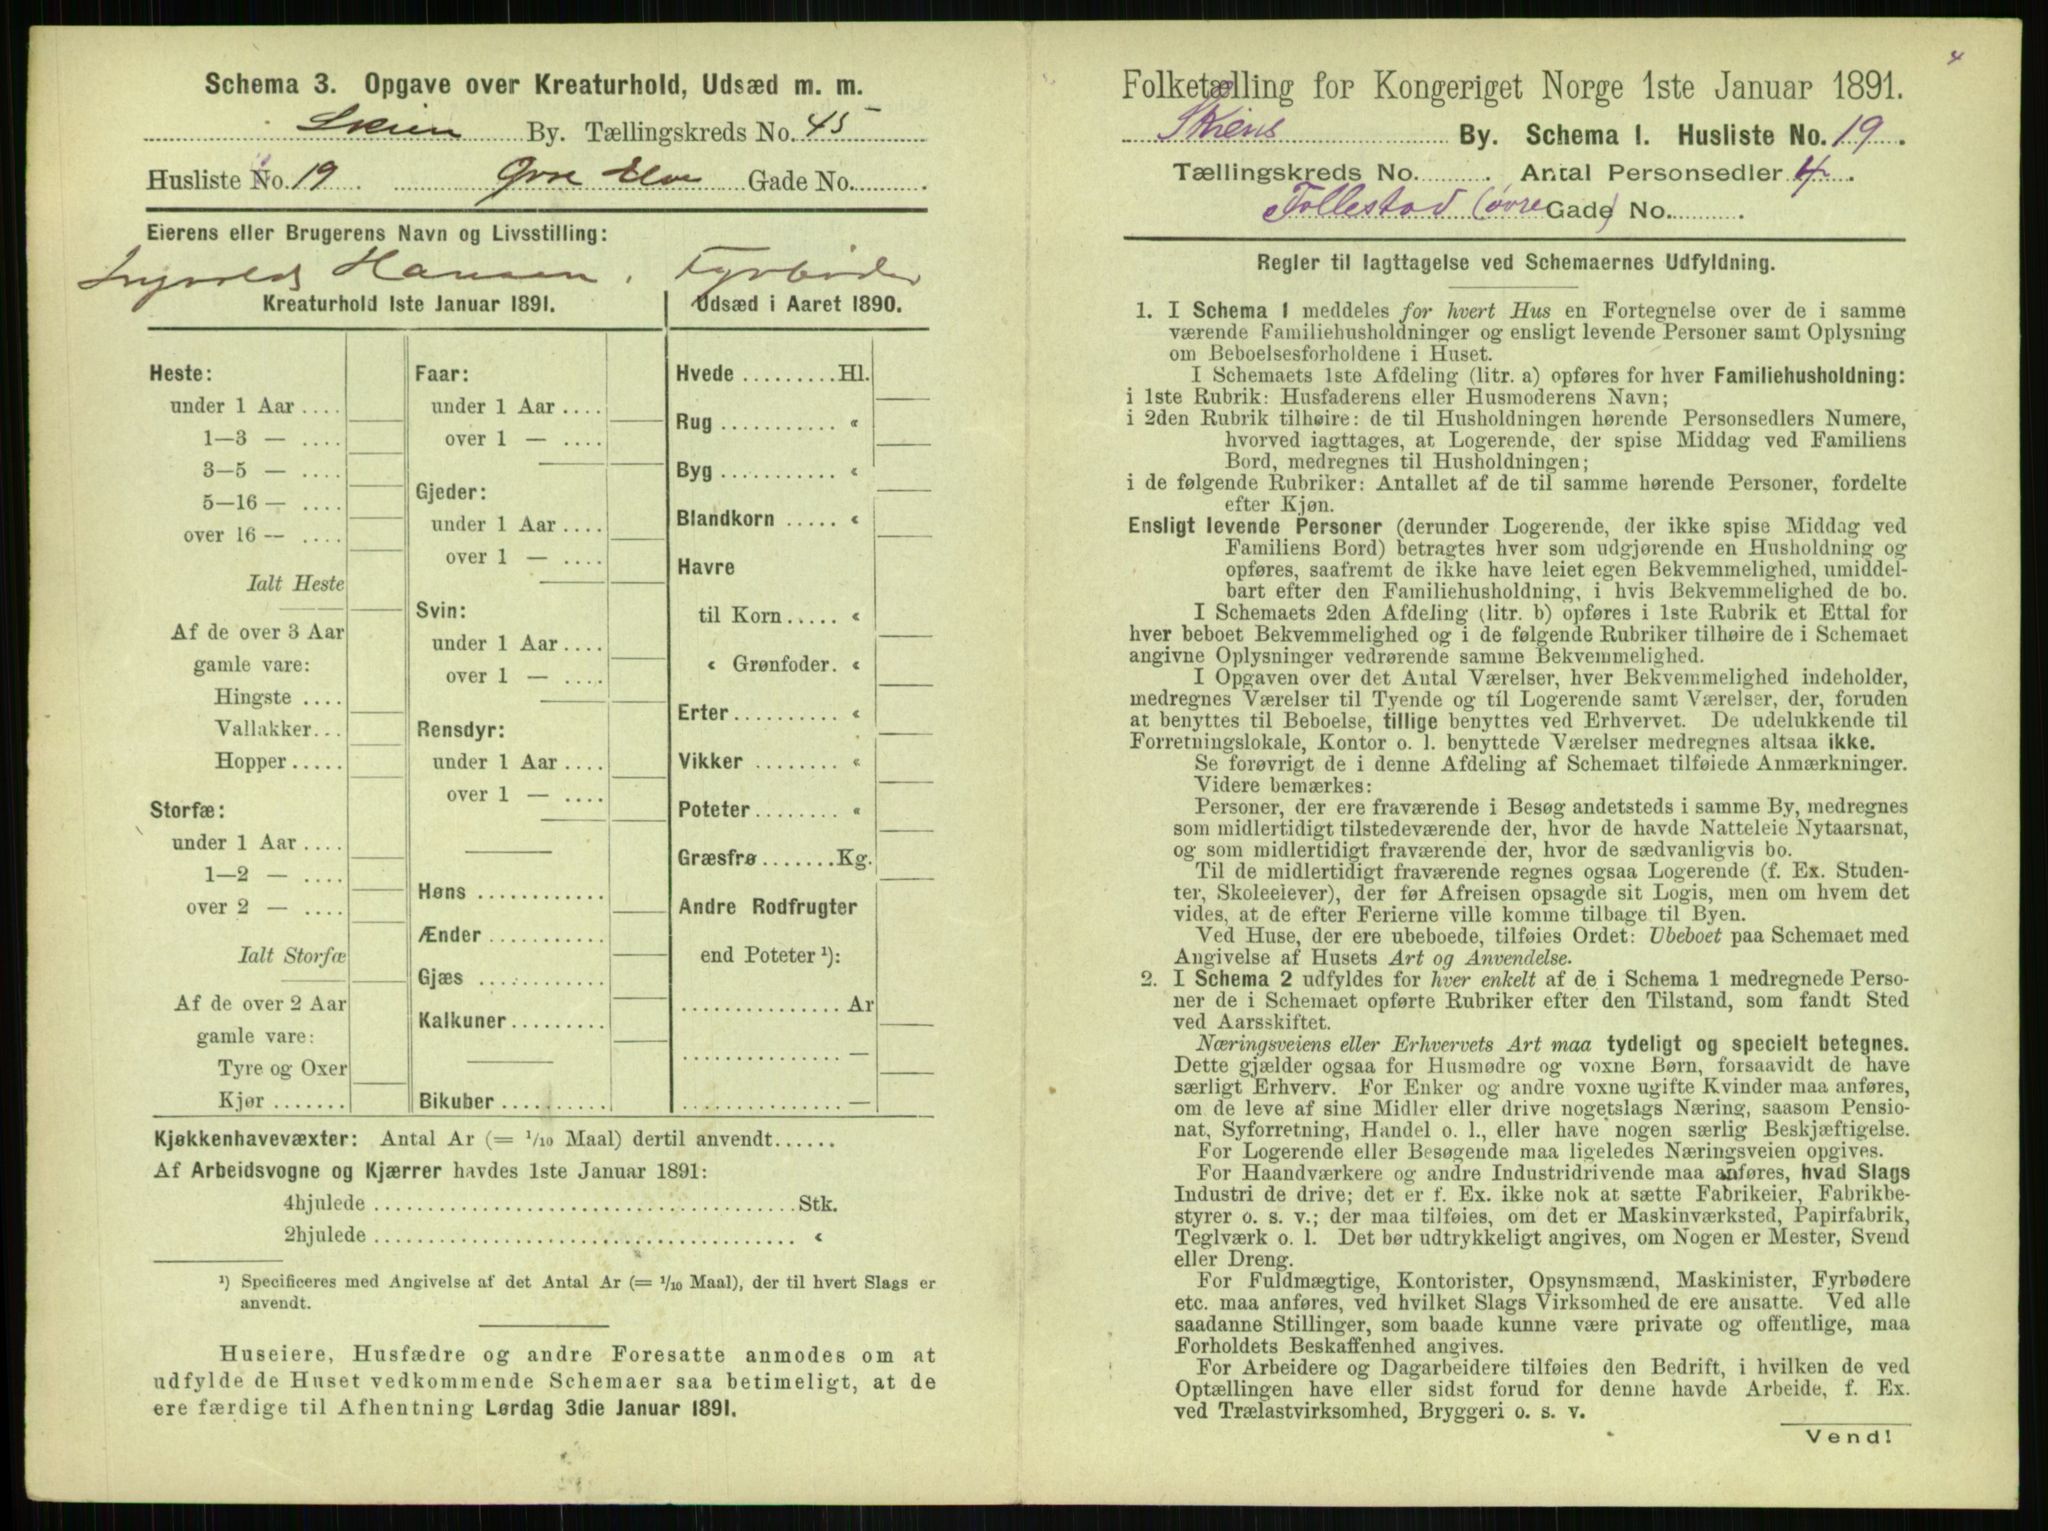 Schema 3. Opgave over Kreaturhold, Udsæd m. m.
Skien By. Tællingskreds No. 45
Husliste No. 19. Øvre Elve Gade No.
Eierens eller Brugerens Navn og Livsstilling:
Hansen. Fyrbøder
Kreaturhold 1ste Januar 1891.
Heste:
under 1 Aar ....
1—3 — ....
3—5 — ....
5—16 — ....
over 16 — ....
Ialt Heste
Af de over 3 Aar
gamle vare:
Hingste ....
Vallakker...
Hopper.....
Storfæ:
under 1 Aar ....
1—2 — ....
over 2 — ....
Ialt Storfæ
Af de over 2 Aar
gamle vare:
Tyre og Oxer
Kjør .......
Faar:
under 1 Aar ....
over 1 — ....
Gjeder:
under 1 Aar ....
over 1 — ....
Svin:
under 1 Aar ....
over 1 — ....
Rensdyr:
under 1 Aar ....
over 1 — ....
Høns ............
Ænder ...........
Gjæs ............
Kalkuner.........
Bikuber ..........
Udsæd i Aaret 1890.
Hvede .........Hl.
Rug ........... «
Byg ........... «
Blandkorn ..... «
Havre
til Korn ..... «
« Grønfoder. «
Erter.......... «
Vikker ........ «
Poteter........ «
Græsfrø.......Kg.
Andre Rodfrugter
end Poteter ¹):
............... Ar
............... —
............... —
Kjøkkenhavevæxter: Antal Ar (= 1/10 Maal) dertil anvendt......
Af Arbeidsvogne og Kjærrer havdes 1ste Januar 1891:
4hjulede ....................................... Stk.
2hjulede ....................................... «
¹) Specificeres med Angivelse af det Antal Ar (= 1/10 Maal), der til hvert Slags er
anvendt.
Huseiere, Husfædre og andre Foresatte anmodes om at
udfylde de Huset vedkommende Schemaer saa betimeligt, at de
ere færdige til Afhentning Lørdag 3die Januar 1891.
4
Folketælling for Kongeriget Norge 1ste Januar 1891.
Skiens By. Schema I. Husliste No. 19.
Tællingskreds No. . Antal Personsedler 4.
Follestad (øvre Gade) No. .
Regler til Iagttagelse ved Schemaernes Udfyldning.
1. I Schema 1 meddeles for hvert Hus en Fortegnelse over de i samme
værende Familiehusholdninger og ensligt levende Personer samt Oplysning
om Beboelsesforholdene i Huset.
I Schemaets 1ste Afdeling (litr. a) opføres for hver Familiehusholdning:
i 1ste Rubrik: Husfaderens eller Husmoderens Navn;
i 2den Rubrik tilhøire: de til Husholdningen hørende Personsedlers Numere,
hvorved iagttages, at Logerende, der spise Middag ved Familiens
Bord, medregnes til Husholdningen;
i de følgende Rubriker: Antallet af de til samme hørende Personer, fordelte
efter Kjøn.
Ensligt levende Personer (derunder Logerende, der ikke spise Middag ved
Familiens Bord) betragtes hver som udgjørende en Husholdning og
opføres, saafremt de ikke have leiet egen Bekvemmelighed, umiddel-
bart efter den Familiehusholdning, i hvis Bekvemmelighed de bo.
I Schemaets 2den Afdeling (litr. b) opføres i 1ste Rubrik et Ettal for
hver beboet Bekvemmelighed og i de følgende Rubriker tilhøire de i Schemaet
angivne Oplysninger vedrørende samme Bekvemmelighed.
I Opgaven over det Antal Værelser, hver Bekvemmelighed indeholder,
medregnes Værelser til Tyende og til Logerende samt Værelser, der, foruden
at benyttes til Beboelse, tillige benyttes ved Erhvervet. De udelukkende til
Forretningslokale, Kontor o. l. benyttede Værelser medregnes altsaa ikke.
Se forøvrigt de i denne Afdeling af Schemaet tilføiede Anmærkninger.
Videre bemærkes:
Personer, der ere fraværende i Besøg andetsteds i samme By, medregnes
som midlertidigt tilstedeværende der, hvor de havde Natteleie Nytaarsnat,
og som midlertidigt fraværende der, hvor de sædvanligvis bo.
Til de midlertidigt fraværende regnes ogsaa Logerende (f. Ex. Studen-
ter, Skoleelever), der før Afreisen opsagde sit Logis, men om hvem det
vides, at de efter Ferierne ville komme tilbage til Byen.
Ved Huse, der ere ubeboede, tilføies Ordet: Ubeboet paa Schemaet med
Angivelse af Husets Art og Anvendelse.
2. I Schema 2 udfyldes for hver enkelt af de i Schema 1 medregnede Perso-
ner de i Schemaet opførte Rubriker efter den Tilstand, som fandt Sted
ved Aarsskiftet.
Næringsveiens eller Erhvervets Art maa tydeligt og specielt betegnes.
Dette gjælder ogsaa for Husmødre og voxne Børn, forsaavidt de have
særligt Erhverv. For Enker og andre voxne ugifte Kvinder maa anføres,
om de leve af sine Midler eller drive nogetslags Næring, saasom Pensio-
nat, Syforretning, Handel o. l., eller have nogen særlig Beskjæftigelse.
For Logerende eller Besøgende maa ligeledes Næringsveien opgives.
For Haandværkere og andre Industridrivende maa anføres, hvad Slags
Industri de drive; det er f. Ex. ikke nok at sætte Fabrikeier, Fabrikbe-
styrer o. s. v.; der maa tilføies, om det er Maskinværksted, Papirfabrik,
Teglværk o. l. Det bør udtrykkeligt angives, om Nogen er Mester, Svend
eller Dreng.
For Fuldmægtige, Kontorister, Opsynsmænd, Maskinister, Fyrbødere
etc. maa anføres, ved hvilket Slags Virksomhed de ere ansatte. Ved alle
saadanne Stillinger, som baade kunne være private og offentlige, maa
Forholdets Beskaffenhed angives.
For Arbeidere og Dagarbeidere tilføies den Bedrift, i hvilken de ved
Optællingen have eller sidst forud for denne havde Arbeide, f. Ex.
ved Trælastvirksomhed, Bryggeri o. s. v.
Vend!